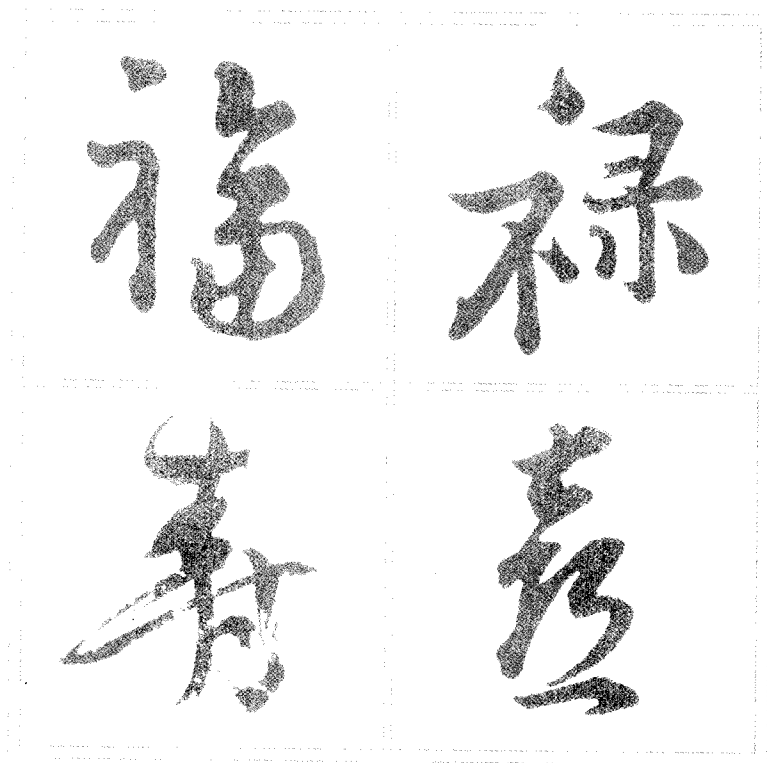 福禄
寿喜